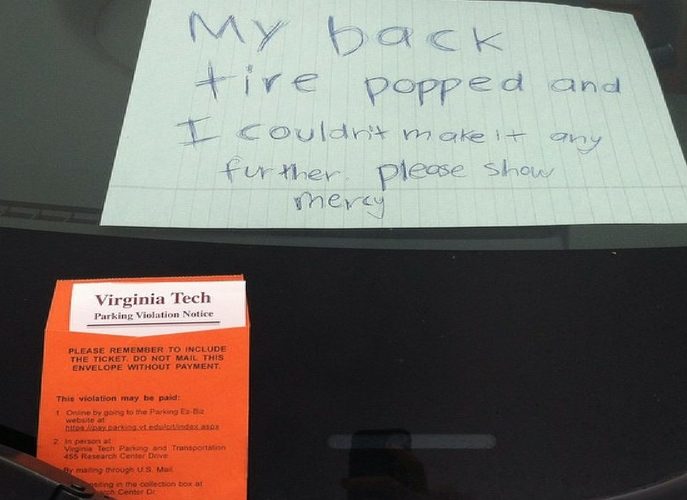 My back
tire popped and
I couldn't make it any
further. please show
mercy
Virginia Tech
Parking Violation Notice
PLEASE REMEMBER TO INCLUDE
THE TICKET. DO NOT MAIL THIS
ENVELOPE WITHOUT PAYMENT.
This violation may be paid:
1. Online by going to the Parking Ez-Biz
website at
https://pay.parking.vt.edu/cit/index.aspx
2. In person at
Virginia Tech Parking and Transportation
455 Research Center Drive
By mailing through U.S. Mail.
in the collection box at
Center Dr